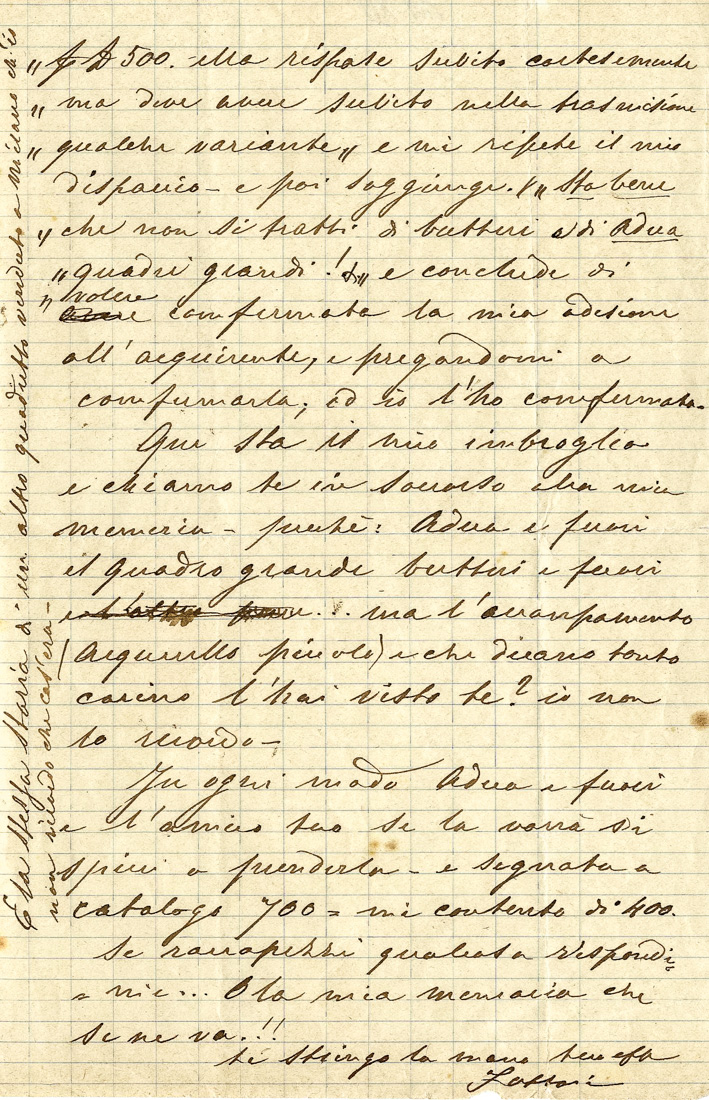 „ £ 500. Ella rispose subito cortesemente
„ ma deve avere subito nella trasmisione
„ qualche variante „ e mi ripete il mio
dispaccio – e poi soggiunge. „ Sta bene
„ che non si tratti di butteri o di Adua
„ quadri grandi! „ e conclude di
„ volere
confermata la mia adesione
all'acquirente, e pregandomi a
confermarla; ed io l'ho confermata.
Qui sta il mio imbroglio
e chiamo te in soccorso alla mia
memoria – perchè: Adua e fuori
il quadro grande butteri e fuori
e l'altro pure ... ma l'accampamento
(Acquerello piccolo) e che dicano tanto
carino l'hai visto te? io non
lo ricordo –
In ogni modo Adua e fuori
e l'amico tuo se la vorrà si
spicci a prenderla – e segnata a
catalogo 700 = mi contento di 400.
Se raccapezzi qualcosa rispondi=
= mi ... O la mia memoria che
se ne va.!!
ti stringo la mano tuo
Fattori
E la stessa storia di un altro quadretto venduto a Milano ch'io
non ricordo che cos'era –